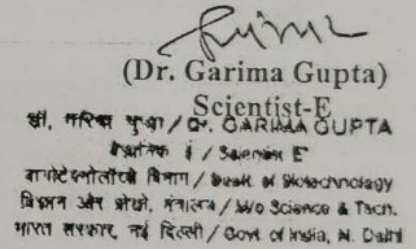 (Dr. Garima Gupta)
Scientist-E
डॉ. गरिमा गुप्ता / Dr. GARIMA GUPTA
वैज्ञानिक ई / Scientist E
विभाग / Deptt. of Biotechnology
विज्ञान और मंत्रालय / M/o Science & Tech.
भारत सरकार, नई दिल्ली / Govt. of India, N. Delhi